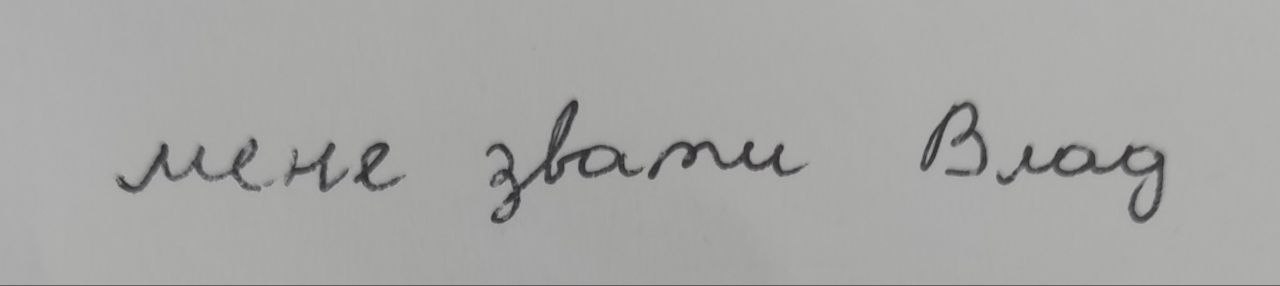 мене звати Влад